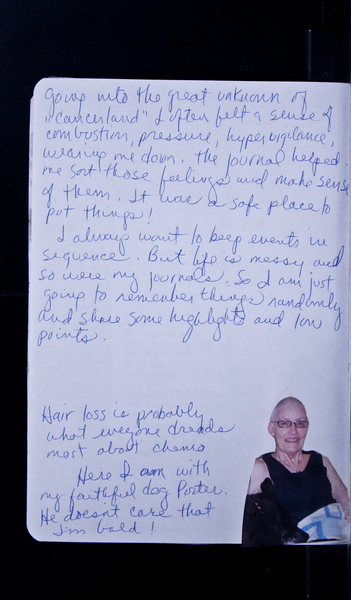 going into the great unknown of
"cancerland" I often felt a sense of
combustion, pressure, hypervigilance,
wearing me down. The journal helped
me sort those feelings and make sense
of them. It was a safe place to
put things!
I always want to keep events in
sequence. But life is messy and
so were my journals. So I am just
going to remember things randomly
and share some highlights and low
points.
Hair loss is probably
what everyone dreads
most about chemo
Here I am with
my faithful dog Porter.
He doesn't care that
I'm bald!